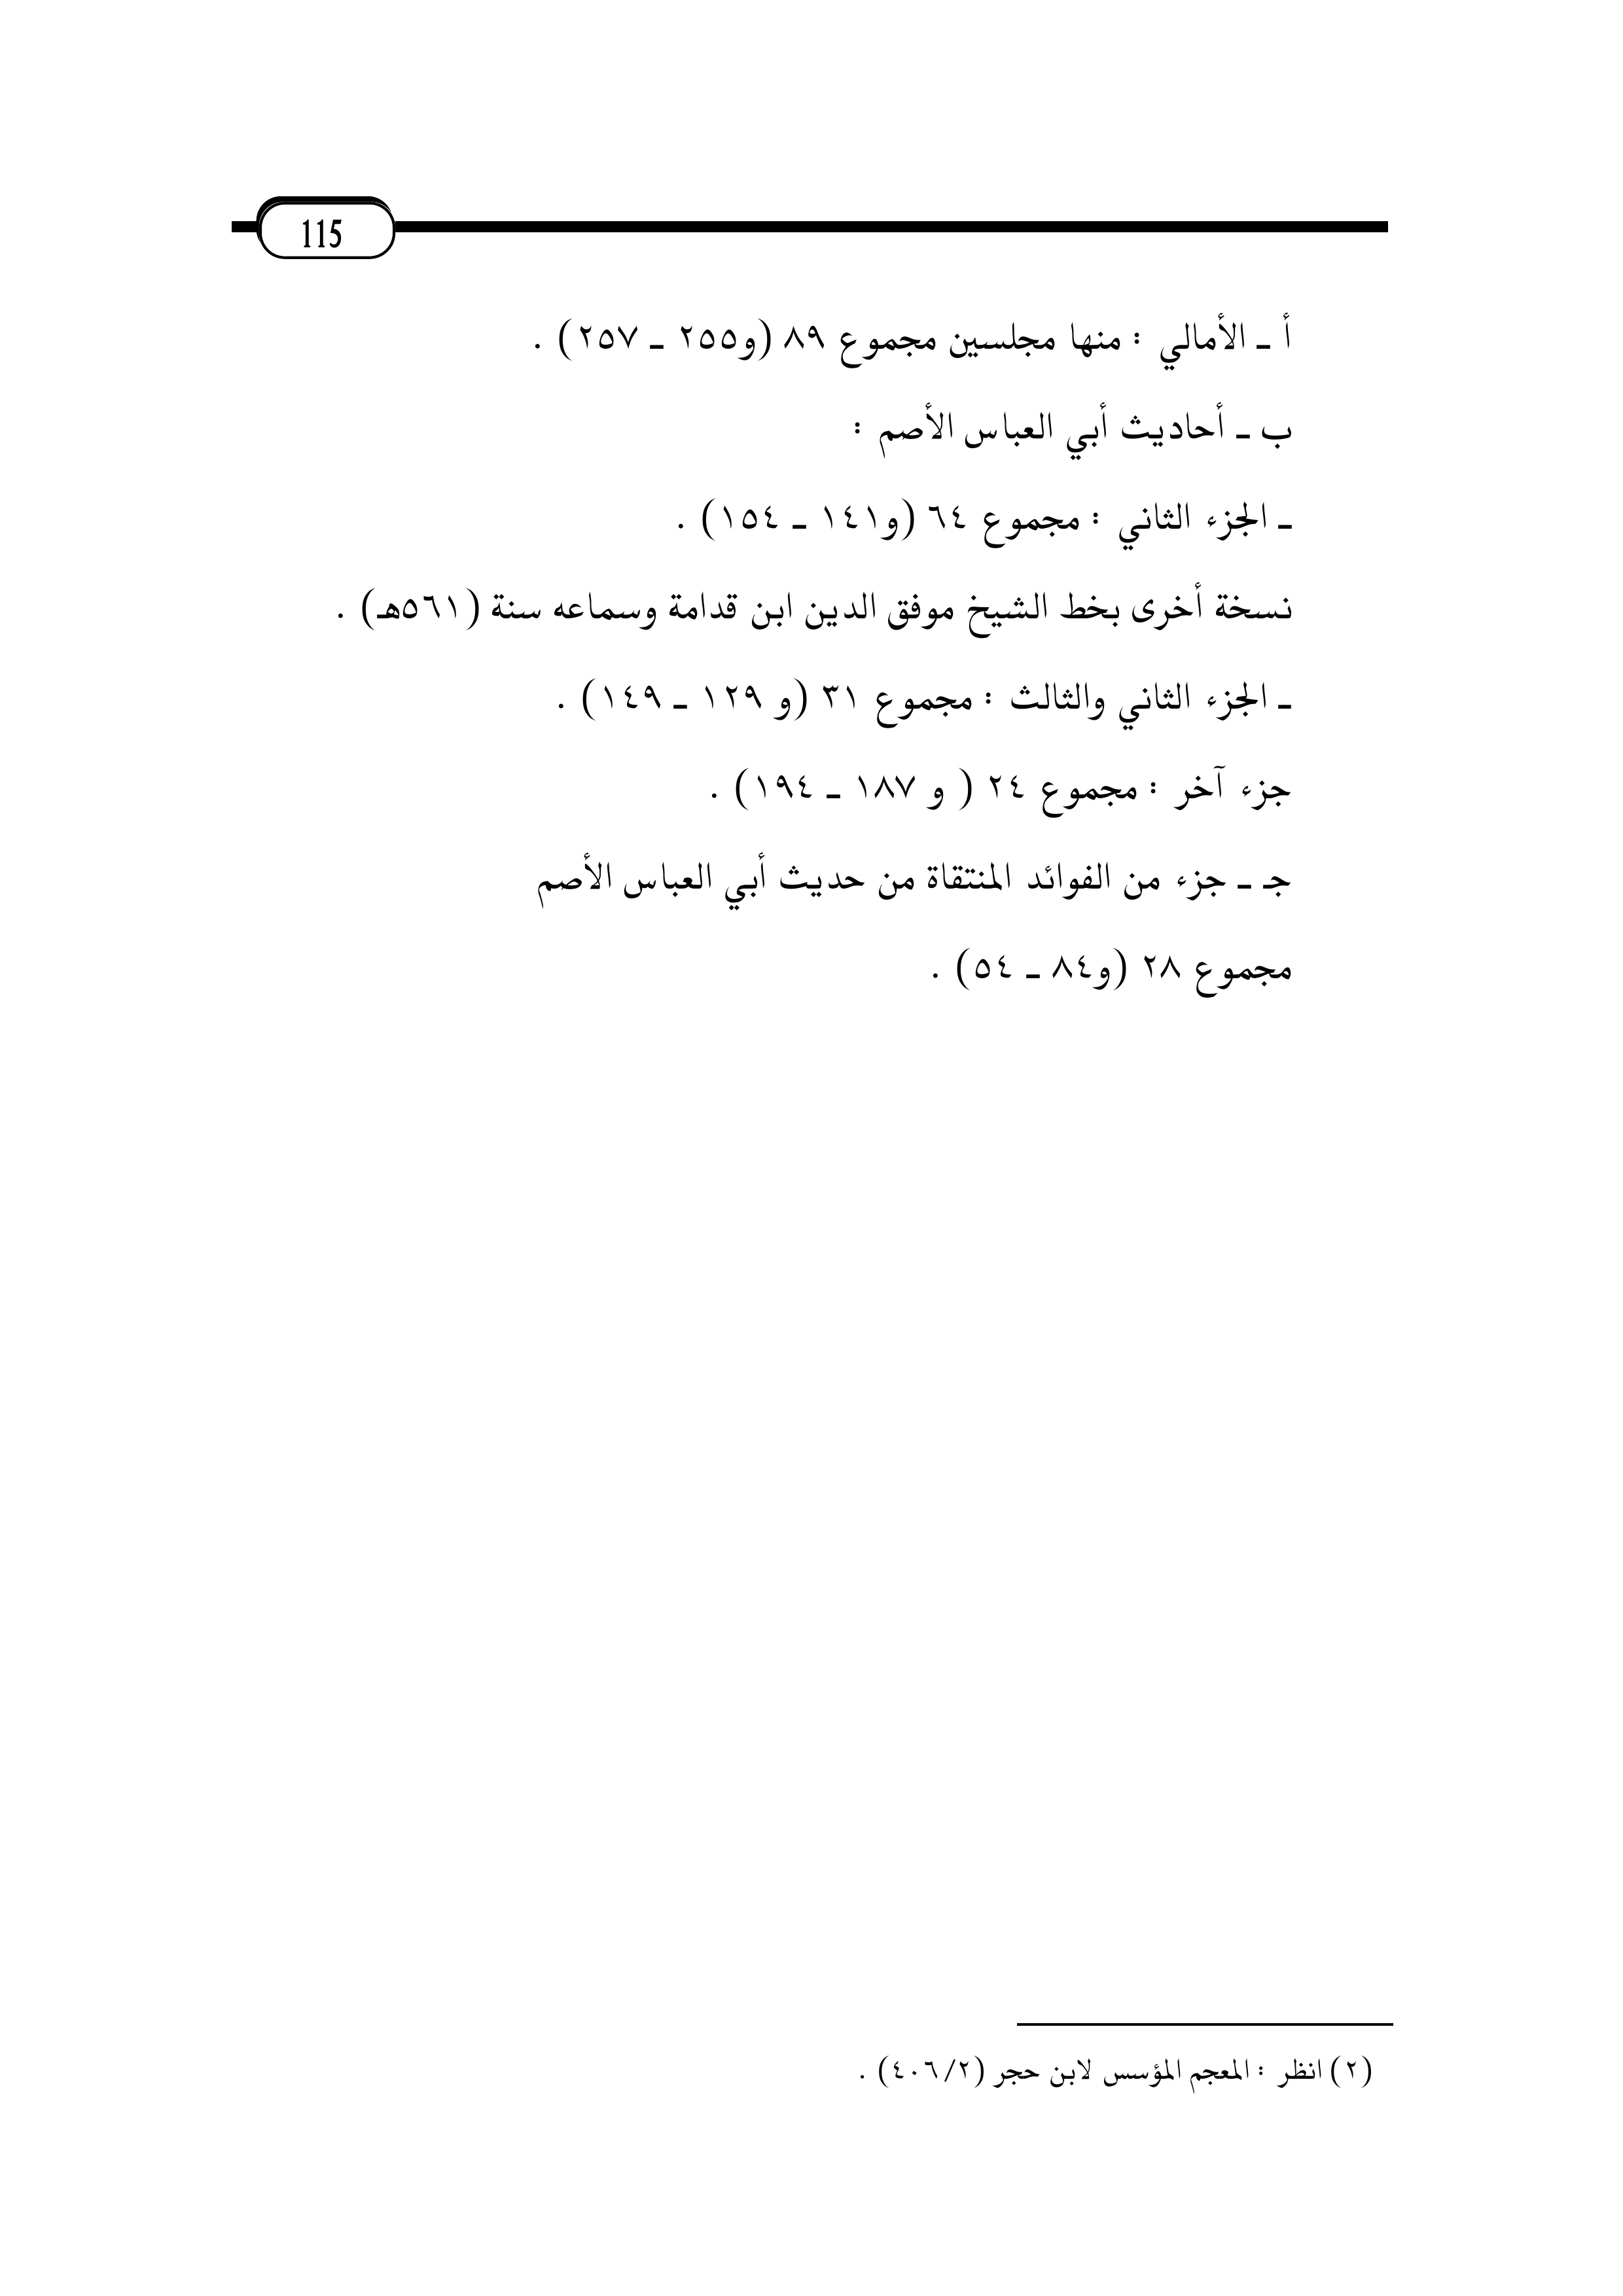 115
أ ـ الأمالي : منها مجلسين مجموع ٨٩ (و٢٥٥ ـ ٢٥٧) .
ب ـ أحاديث أبي العباس الأصم :
ـ الجزء الثاني : مجموع ٦٤ (و١٤١ ـ ١٥٤) .
نسخة أخرى بخط الشيخ موفق الدين ابن قدامة وسماعه سنة (٥٦١هـ) .
ـ الجزء الثاني والثالث : مجموع ٣١ (و ١٢٩ ـ ١٤٩) .
جزء آخر : مجموع ٢٤ ( و ١٨٧ ـ ١٩٤) .
جـ ـ جزء من الفوائد المنتقاة من حديث أبي العباس الأصم
مجموع ٢٨ (و٨٤ ـ ٥٤) .
(٢) انظر : المعجم المؤسس لابن حجر (٤٠٦/٢) .